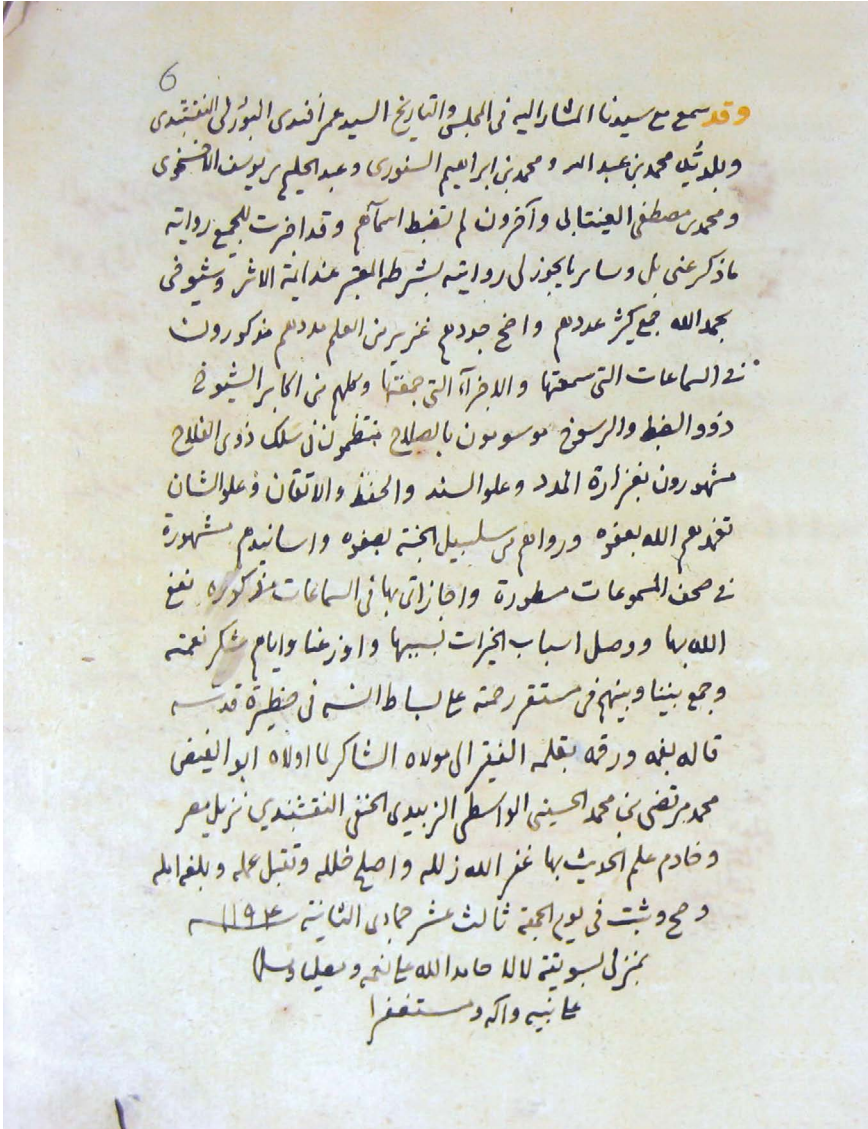 6
وقد سمع مع سيدنا المشار اليه فى المجلس والتاريخ السيد عمر افندى النقشبندى
محمد بن عبد الله ومحمد بن ابراهيم السنورى وعبد الحليم بن يوسف
ومحمد بن مصطفى العينتابى وآخرون لم تضبط اسمآهم وقد اجزت للجميع رواية
ما ذكر عنى بل وساير ما يجوز لى روايته بشرطه المعتبر عند ائمة الاثر وشيوخى
بحمد الله جمع كثير عددهم واضح جودهم غزير من العلم مددهم مذكورون
فى السماعات التى سمعتها والاجزآء التى جمعتها وكلهم من اكابر الشيوخ
ذوو الضبط والرسوخ موسومون بالصلاح منتظمون فى سلك ذوى الفلاح
مشهورون بغزارة المدد وعلو السند والحفظ والاتقان وعلو الشان
تغمدهم الله بعفوه ورواهم من سلسبيل الجنة بصفوه واسانيدهم مشهورة
فى صحف المسموعات مسطورة واجازاتى بها فى السماعات مذكوره نفع
الله بها ووصل اسباب الخيرات بسببها واوزعنا واياهم شكر نعمته
وجمع بيننا وبينهم فى مستقر رحمته على بساط انسه فى حظيرة قدسه
قاله بفمه ورقمه بقلمه الفقير الى مولاه الشاكر لما اولاه ابو الفيض
محمد مرتضى بن محمد الحسينى الواسطى الزبيدى الحنفى النقشبندي نزيل مصر
وخادم علم الحديث بها غفر الله زلله واصلح خلله وتقبل عمله وبلغه امله
وصح وثبت فى يوم الجمعة ثالث عشر جمادى الثانية سنه ١١٩٤
بمنزلى بسويقة لالا حامدا لله على نعمه ومصليا ومسلما
على نبيه وآله ومستغفرا